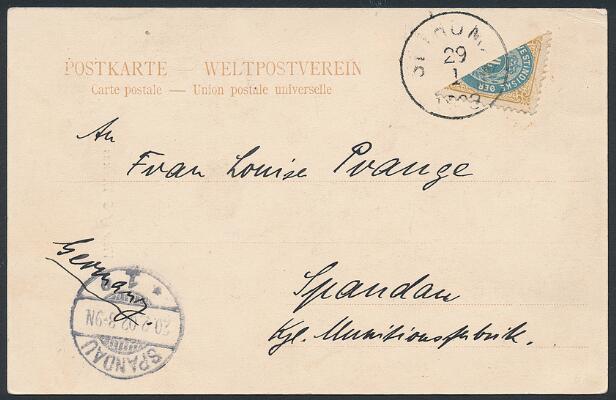 POSTKARTE — WELTPOSTVEREIN
Carte postale — Union postale universelle
ST. THOMAS
29
1
1903
VESTINDISKE ØER
An
Frau Louise Prange
Germany.
Spandau
Kgl. Munitionsfabrik.
SPANDAU
1